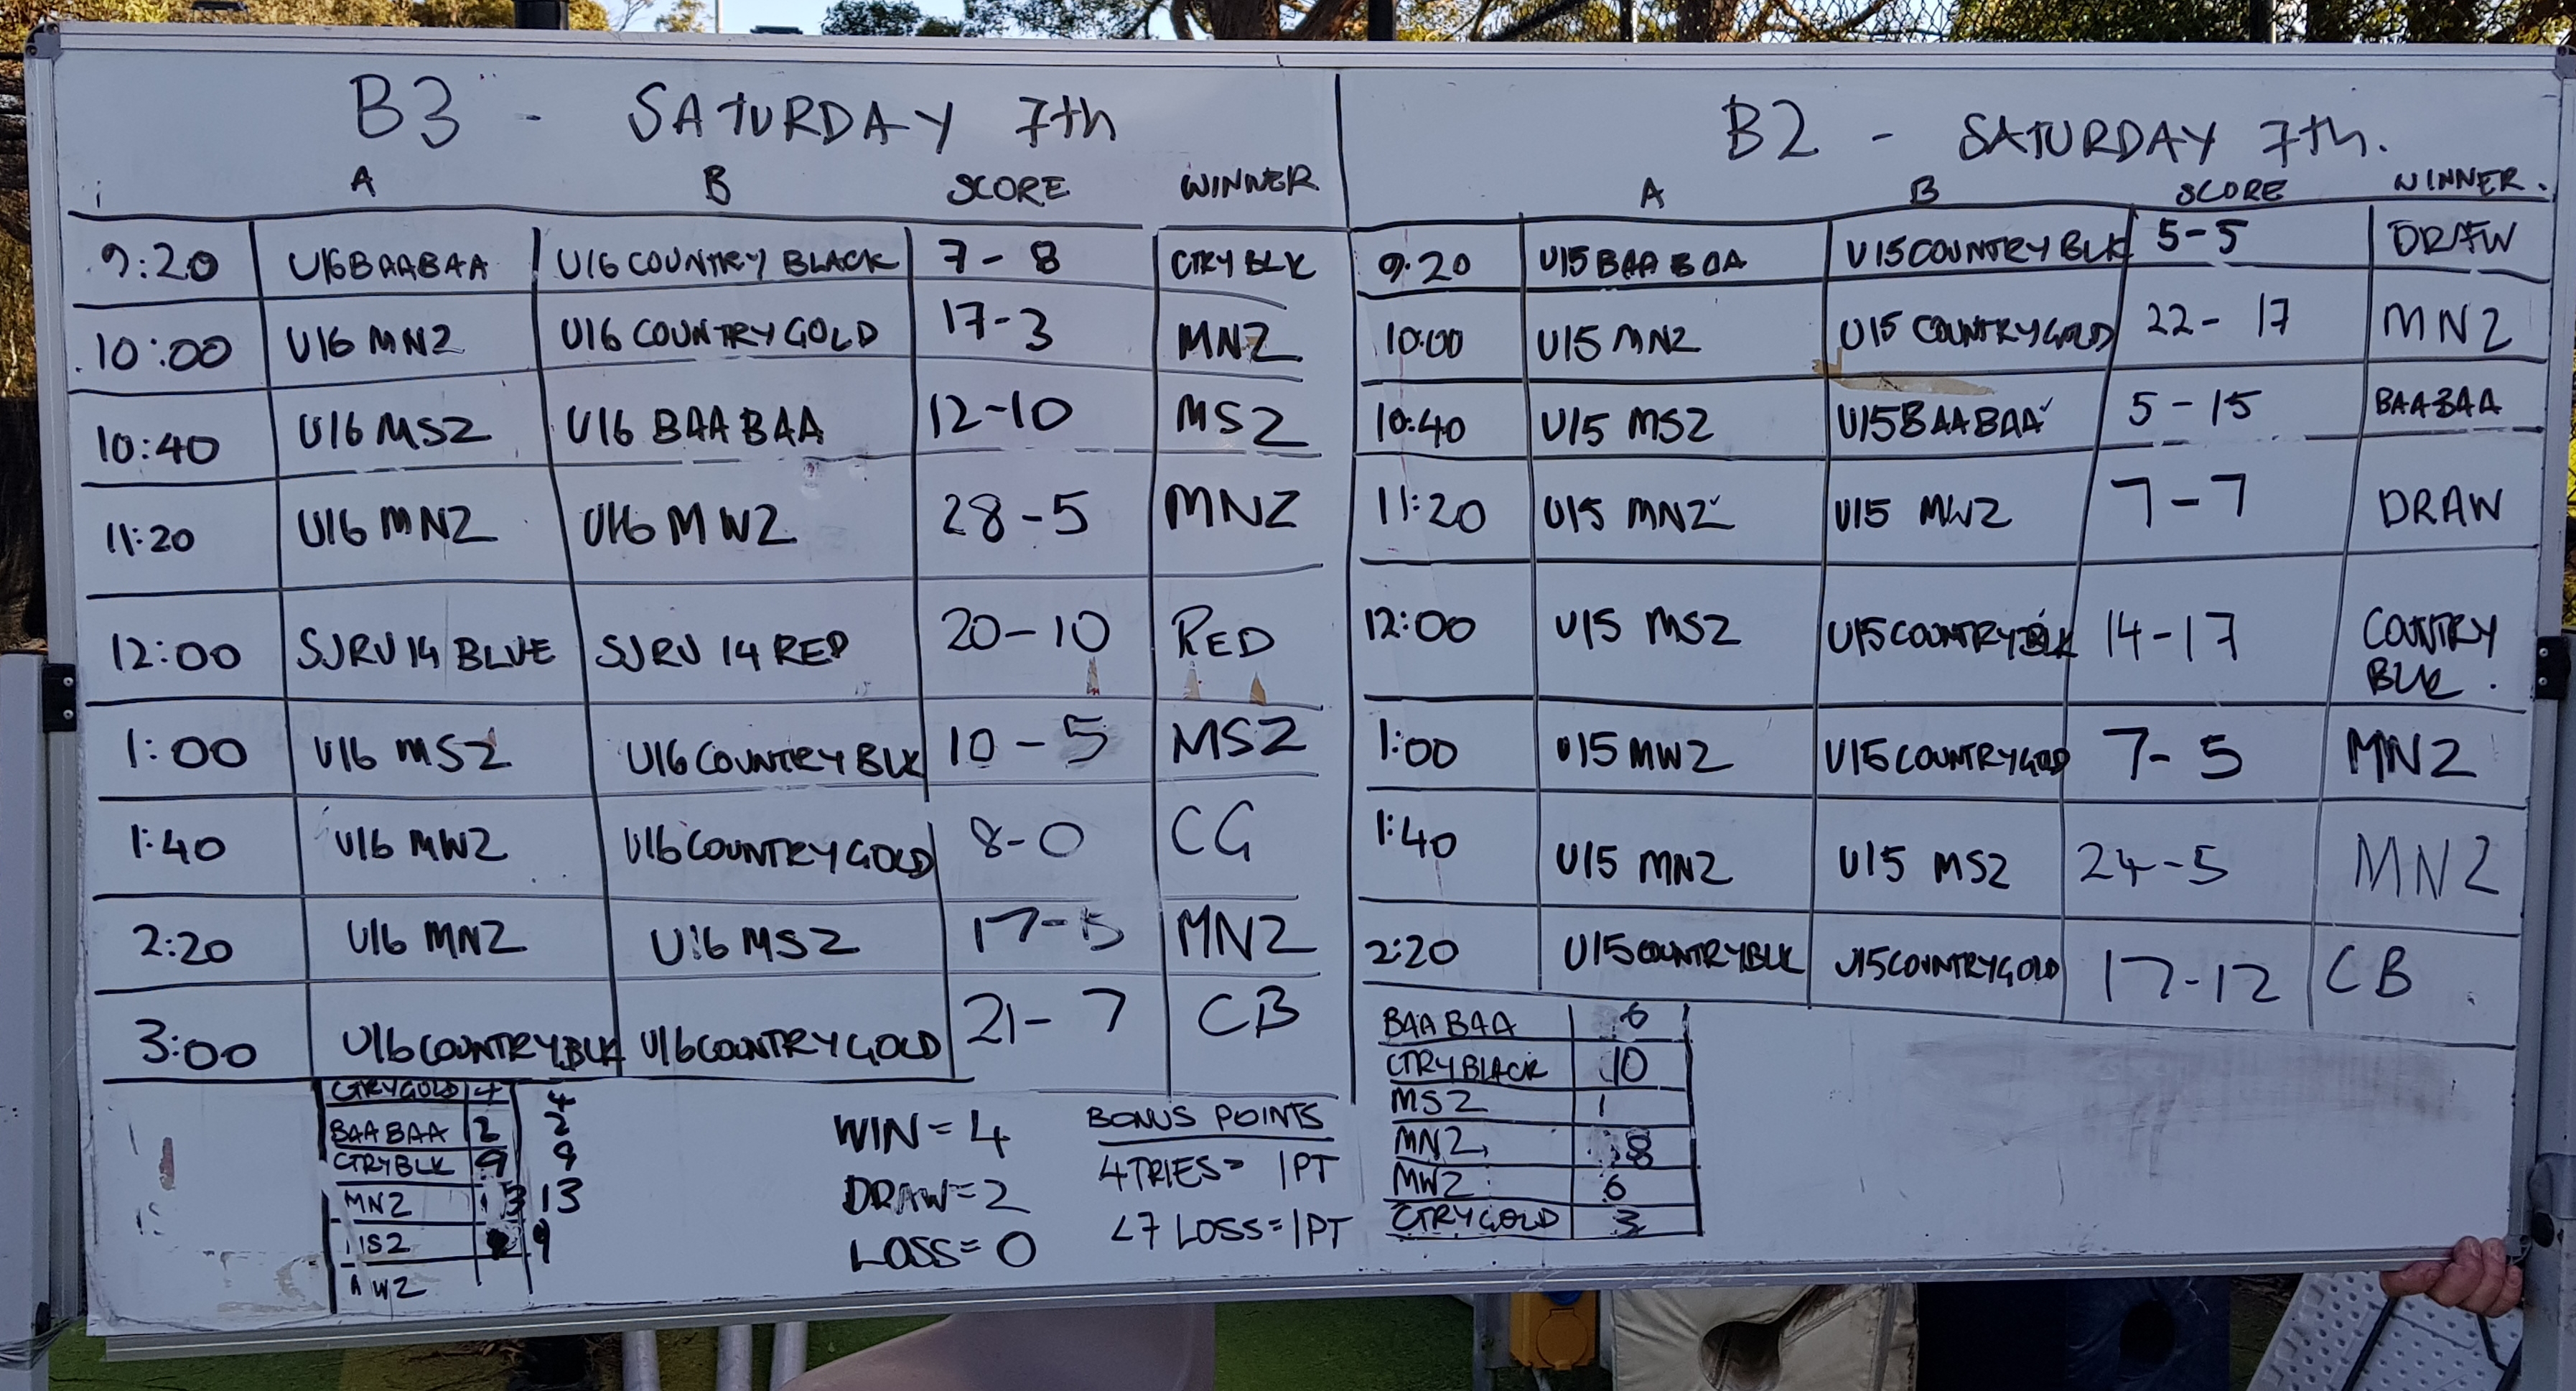 B3 - SATURDAY 7th
A B SCORE WINNER
9:20 U16 BAABAA U16 COUNTRY BLACK 7-8 CTRY BLK
10:00 U16 MNZ U16 COUNTRY GOLD 17-3 MNZ
10:40 U16 MSZ U16 BAA BAA 12-10 MSZ
11:20 U16 MNZ U16 MWZ 28-5 MNZ
12:00 SJRU 14 BLUE SJRU 14 RED 20-10 RED
1:00 U16 MSZ U16 COUNTRY BLK 10-5 MSZ
1:40 U16 MWZ U16 COUNTRY GOLD 8-0 CG
2:20 U16 MNZ U16 MSZ 17-5 MNZ
3:00 U16 COUNTRY BLK U16 COUNTRY GOLD 21-7 CB
CTRY GOLD 4 4
BAA BAA 2 2
CTRY BLK 9 9
MNZ 13 13
MSZ 9
WZ
WIN = 4
DRAW = 2
LOSS = 0
BONUS POINTS
4 TRIES = 1PT
<7 LOSS = 1PT
B2 - SATURDAY 7th.
A B SCORE WINNER.
9.20 U15 BAA BAA U15 COUNTRY BLK 5-5 DRAW
10:00 U15 MNZ U15 COUNTRY GOLD 22-17 MNZ
10:40 U15 MSZ U15 BAABAA 5-15 BAABAA
11:20 U15 MNZ U15 MWZ 7-7 DRAW
12:00 U15 MSZ U15 COUNTRY BLK 14-17 COUNTRY
BLK.
1:00 U15 MWZ U15 COUNTRY GOLD 7-5 MNZ
1:40 U15 MNZ U15 MSZ 24-5 MNZ
2:20 U15 COUNTRY BLK U15 COUNTRY GOLD 17-12 CB
BAA BAA 6
CTRY BLACK 10
MSZ 1
MNZ 8
MWZ 6
CTRY GOLD 3